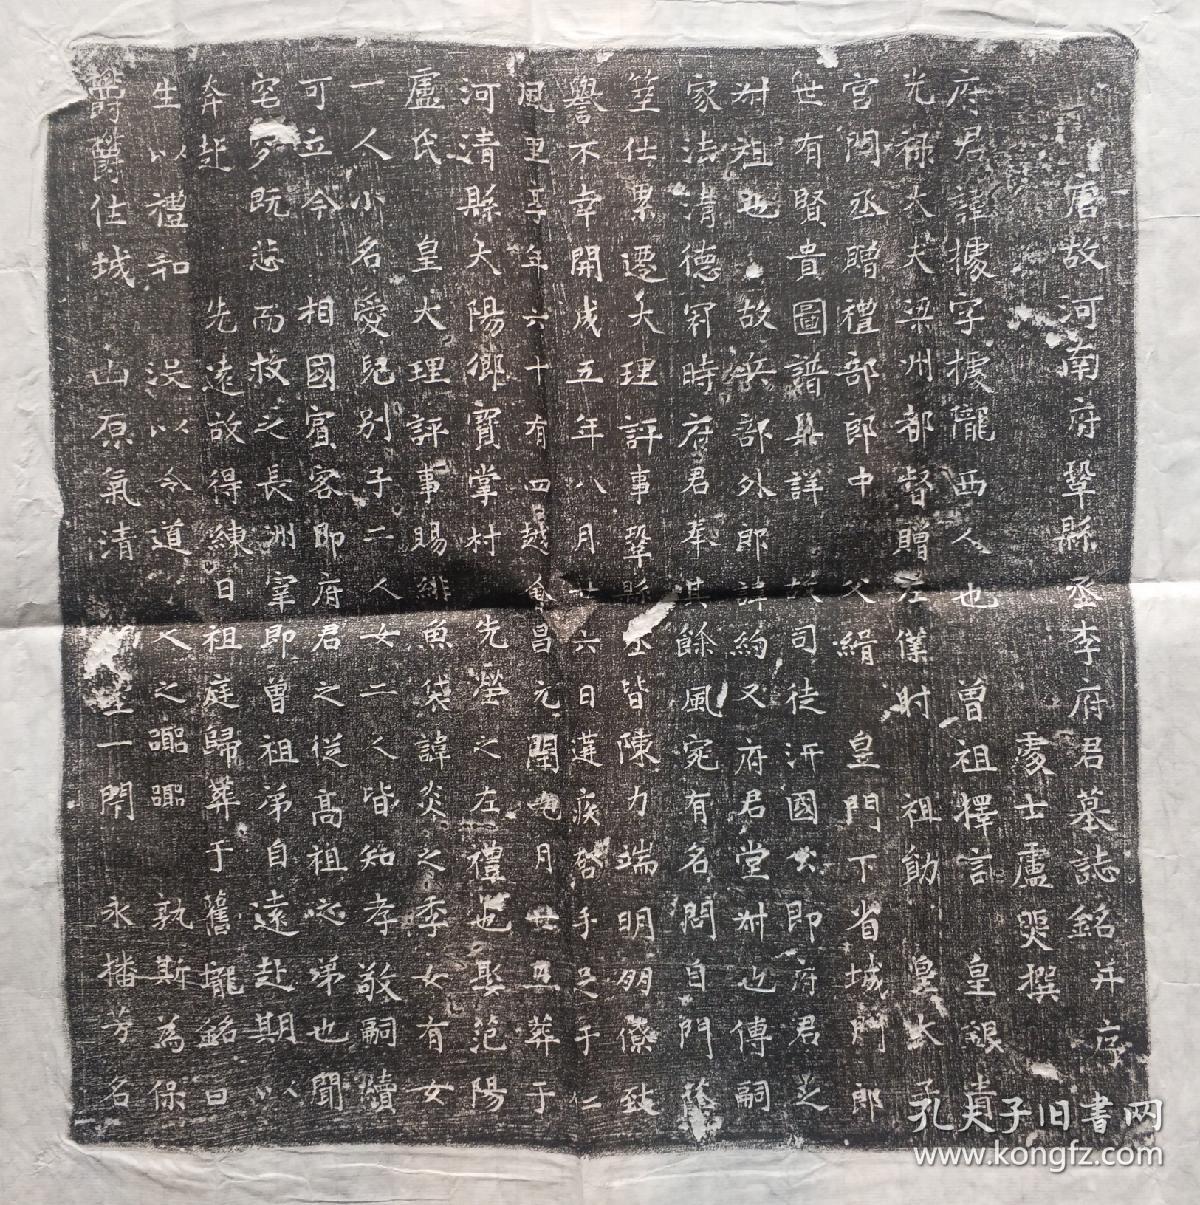 唐故河南府鞏縣丞李府君墓誌銘并序
處士盧䂮撰
府君諱據字據隴西人也 曾祖擇言 皇銀青
光祿大夫梁州都督贈左僕射 祖勛 皇太子
宮門丞贈禮部郎中 父緝 皇門下省城門郎
世有賢貴圖譜具詳 故司徒汧國公即府君之
叔祖也 故兵部外郎諱約又府君堂叔也傳嗣
家法清德冠時府君奉其餘風宛有名問自門蔭
筮仕累遷大理評事鞏縣丞皆陳力端明朋僚致
譽不幸開成五年八月廿六日遘疾啓手足于仁
風里享年六十有四越會昌元閏九月廿五葬于
河清縣大陽鄉寶掌村 先塋之左禮也娶范陽
盧氏 皇大理評事賜緋魚袋諱炎之季女有女
一人小名愛兒別子二人女二人皆知孝敬嗣牘
可立今 相國賓客即府君之從高祖之弟也聞
宅穸既悲而救之長洲宰即曾祖弟自遠赴期以
奔赴 先遠故得練日祖庭歸葬于舊壠銘曰
生以禮和 沒以令道 人之 孰斯為保
爵 仕城 山原氣清 一閉 永播芳名
孔夫子旧书网
www.kongfz.com